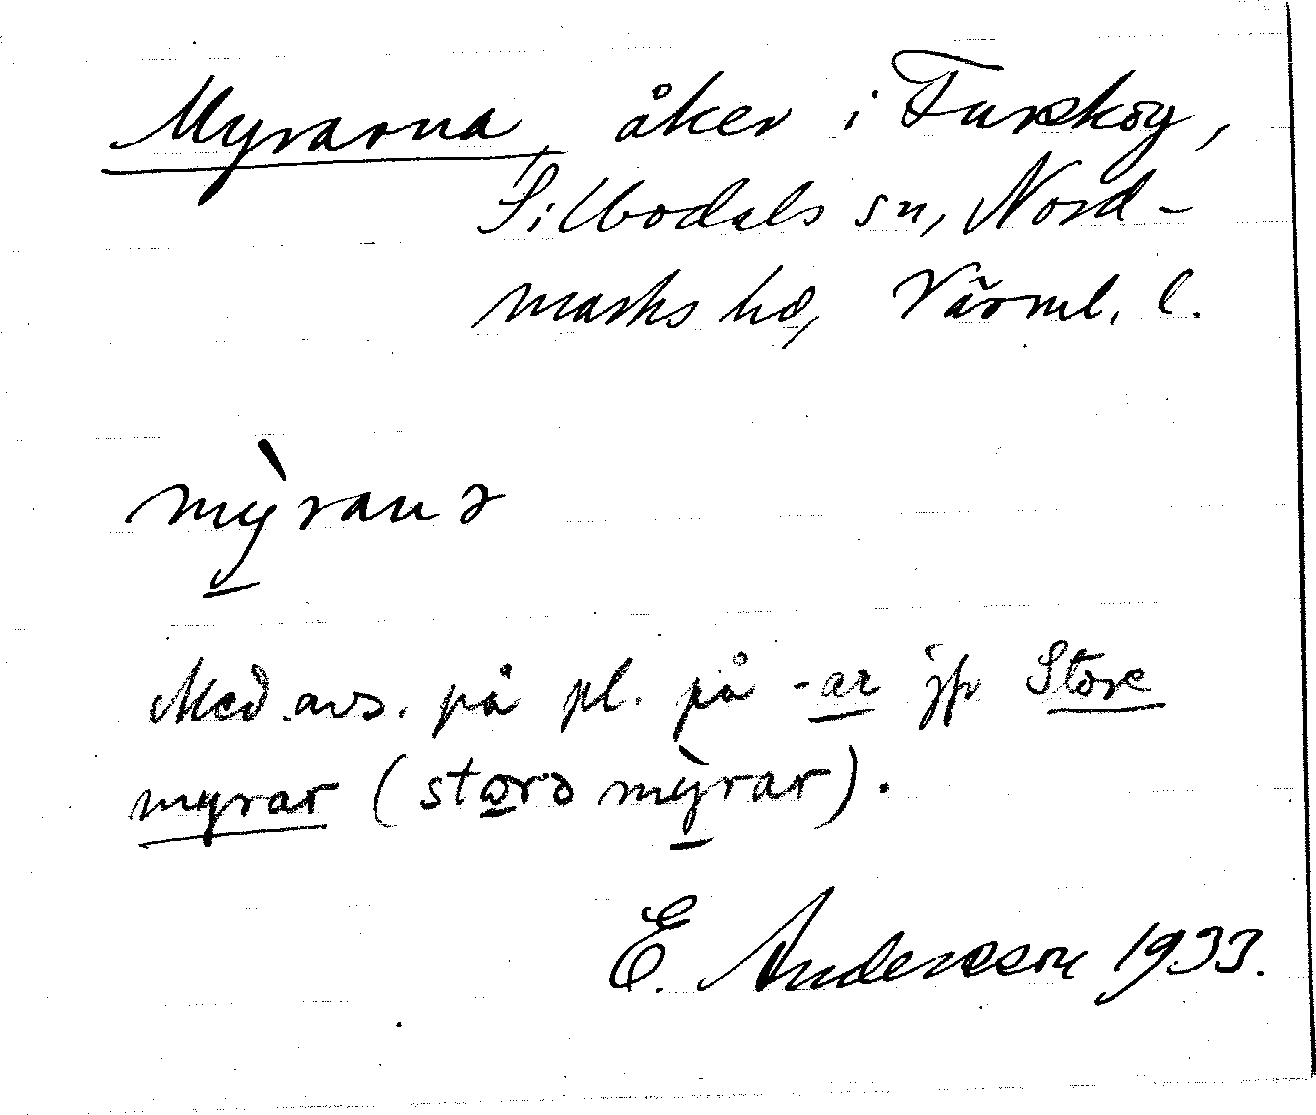 Myrarna, åker i Furskog,
Silbodals sn, Nord-
marks hd, Värml. l.
mỳ̱ranə
Med avs. på pl. på -ar jfr Store
myrar (sto̱rə mỳ̱rar).
E. Andersson 1933.